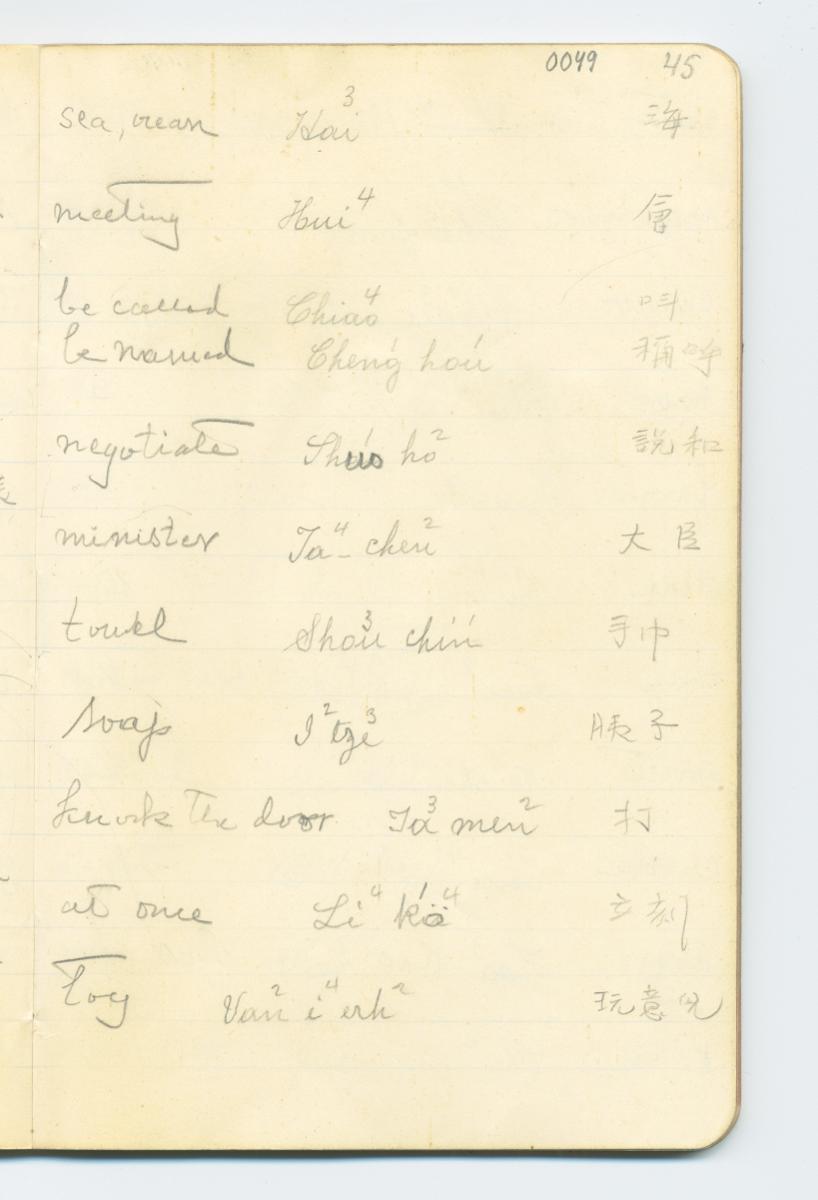 0049 45
sea, ocean Hai³ 海
meeting Hui⁴ 會
be called Chiao⁴ 叫
be named Cheng¹ hou¹ 稱呼
negotiate Shuo¹ ho² 説和
minister Ta⁴- chen² 大臣
towel Shou³ chin¹ 手巾
soap I² tze³ 胰子
knock the door Ta³ men² 打
at once Li⁴ k'ö⁴ 立刻
toy Van² i⁴ erh² 玩意兒